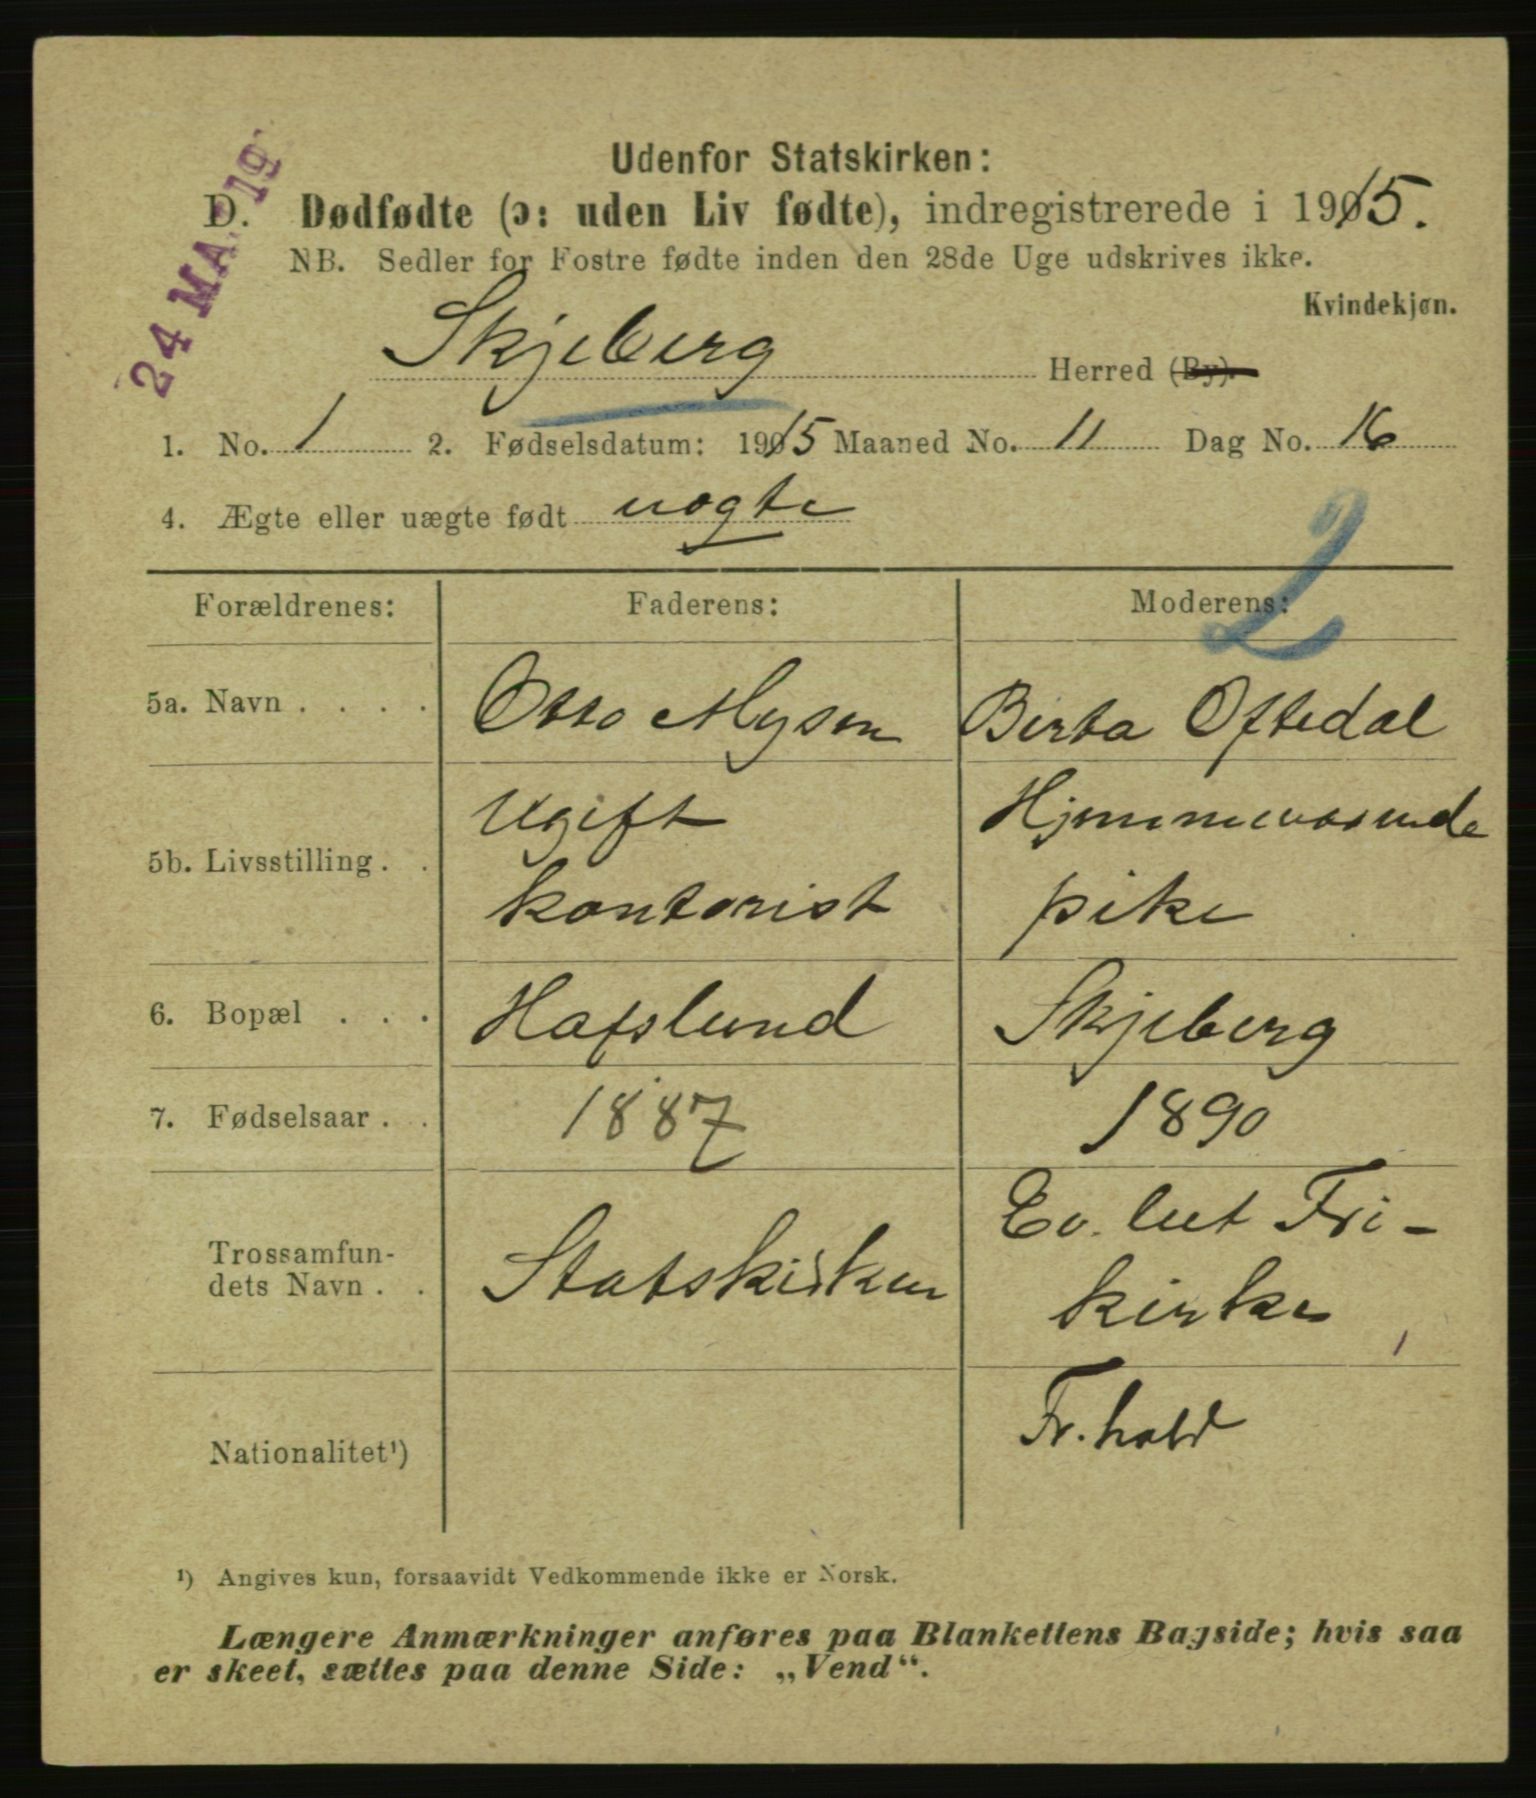 24 MA 19
Udenfor Statskirken:
D. Dødfødte (ɔ: uden Liv fødte), indregistrerede i 1915.
NB. Sedler for Fostre fødte inden den 28de Uge udskrives ikke.
Kvindekjøn.
Skjeberg Herred (By).
1. No. 1 2. Fødselsdatum: 1915 Maaned No. 11 Dag No. 16
4. Ægte eller uægte født uægte
2
Forældrenes: Faderens: Moderens:
5a. Navn . . . . Otto Mysen Birta Oftedal
Ugift Hjemmeværende
5b. Livsstilling . .
kontorist pike
6. Bopæl . . . Hafslund Skjeberg
7. Fødselsaar . . 1887 1890
Ev. lut Fri-
Trossamfun-
dets Navn . . Statskirken
kirke
Fr.hald
Nationalitet¹)
¹) Angives kun, forsaavidt Vedkommende ikke er Norsk.
Længere Anmærkninger anføres paa Blankettens Bagside; hvis saa
er skeet, sættes paa denne Side: „Vend“.